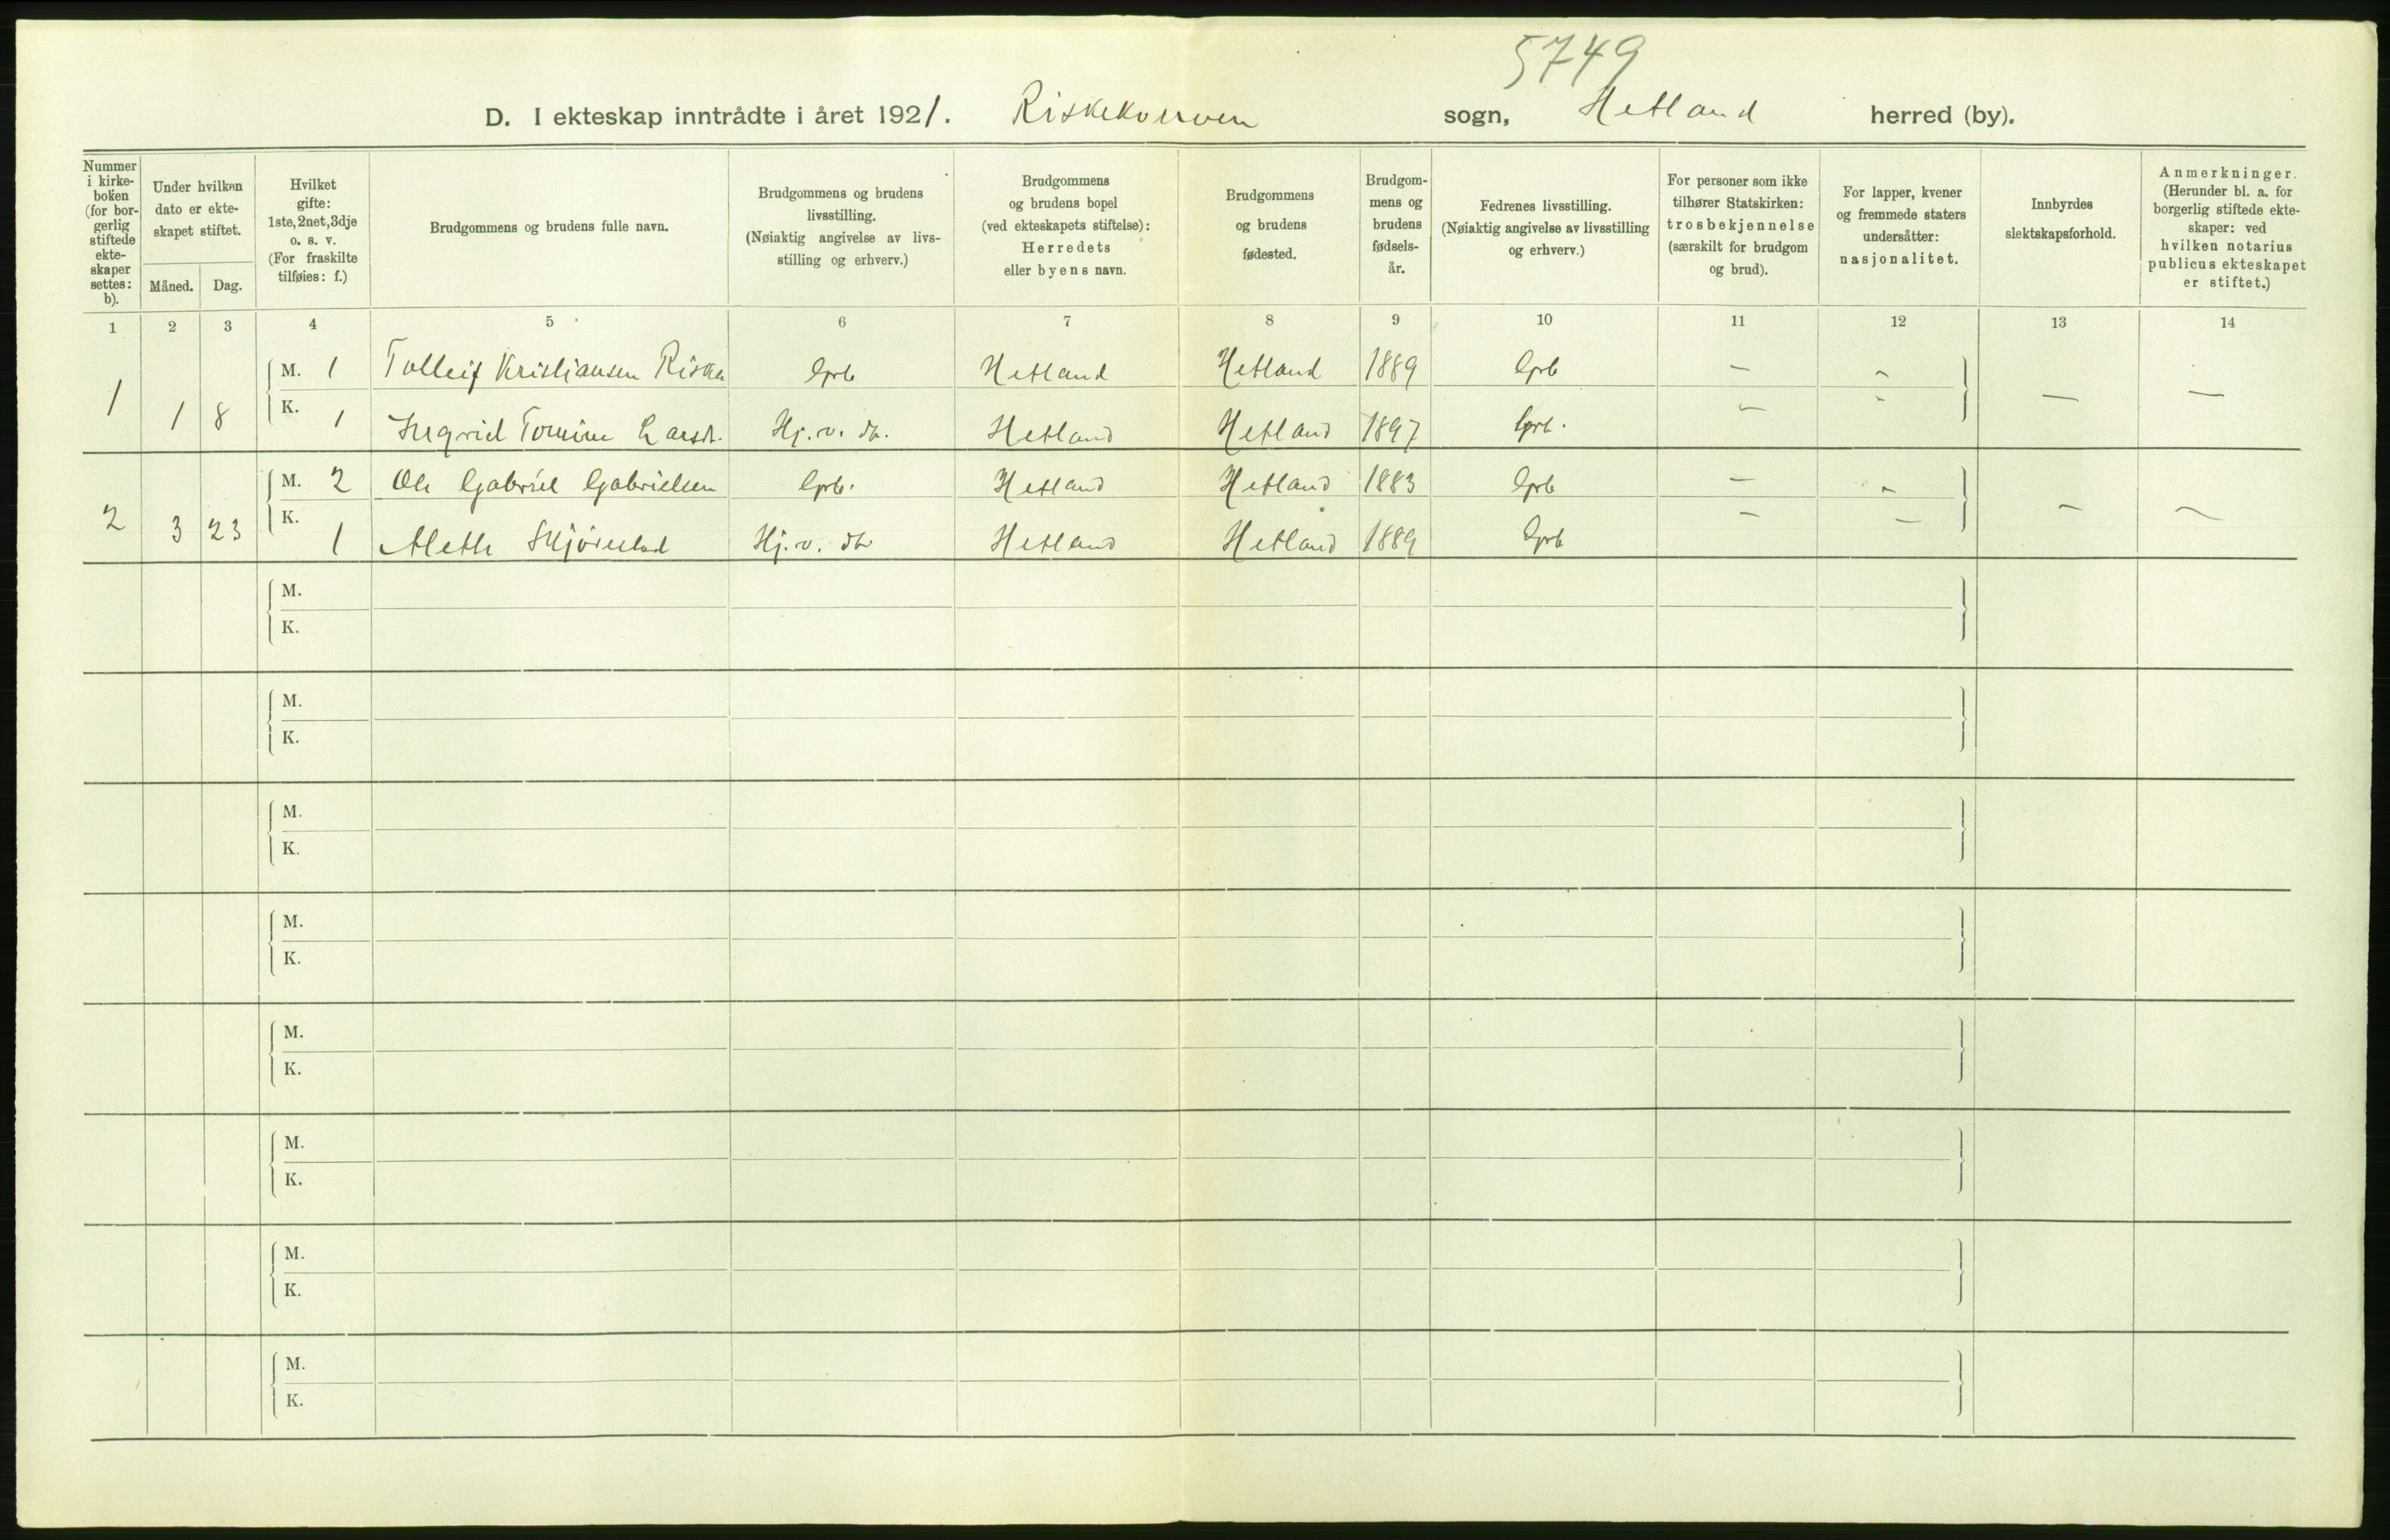 5749
D. I ekteskap inntrådte i året 1921. Riskekverven sogn, Hetland herred (by).
Nummer i kirke-boken (for bor-gerlig stiftede ekte-skaper settes: b).
Under hvilken dato er ekte-skapet stiftet.
Måned. Dag.
Hvilket gifte: 1ste, 2net, 3dje o. s. v. (For fraskilte tilføies: f.)
Brudgommens og brudens fulle navn.
Brudgommens og brudens livsstilling. (Nøiaktig angivelse av livs-stilling og erhverv.)
Brudgommens og brudens bopel (ved ekteskapets stiftelse): Herredets eller byens navn.
Brudgommens og brudens fødested.
Brudgom-mens og brudens fødsels-år.
Fedrenes livsstilling. (Nøiaktig angivelse av livsstilling og erhverv.)
For personer som ikke tilhører Statskirken: trosbekjennelse (særskilt for brudgom og brud).
For lapper, kvener og fremmede staters undersåtter: nasjonalitet.
Innbyrdes slektskapsforhold.
Anmerkninger. (Herunder bl. a. for borgerlig stiftede ekte-skaper: ved hvilken notarius publicus ekteskapet er stiftet.)
1 2 3 4 5 6 7 8 9 10 11 12 13 14
M. 1 Tolleif Kristiansen Riska Gprb Hetland Hetland 1889 Gprb — — — —
1 1 8 K. 1 Ingrid Tomine Larsdt. Hj. v. dr. Hetland Hetland 1897 Gprb. — —
M. 2 Ole Gabriel Gabrielsen Gprb. Hetland Hetland 1883 Gprb — — — —
2 3 23 K. 1 Alette Skjørestad Hj. v. dr Hetland Hetland 1889 Gprb — —
M.
K.
M.
K.
M.
K.
M.
K.
M.
K.
M.
K.
M.
K.
M.
K.